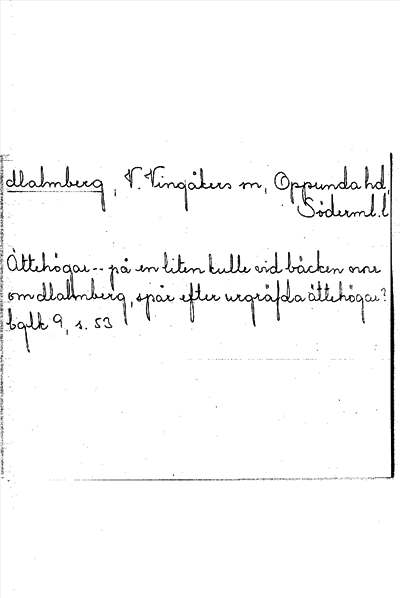 Malmberg, V. Vingåkers sn, Oppunda hd,
Söderml. l
Ättehögar -- på en liten kulle vid bäcken norr
om Malmberg, spår efter urgräfda ättehögar?
bglk 9, s. 53